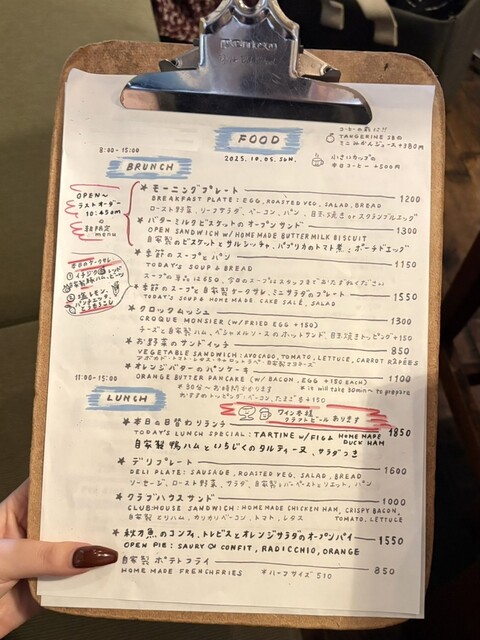 FOOD
2025.10.05.SUN.
TANGERINE
みかんジュース +380円
小さいカップの
本日コーヒー +500円
8:00-15:00
BRUNCH
OPEN~
ラストオーダー
10:45am
の
期間限定
menu
★ モーニングプレート 1200
BREAKFAST PLATE: EGG, ROASTED VEG, SALAD, BREAD
ロースト野菜、リーフサラダ、ベーコン、パン、目玉焼き or スクランブルエッグ
★ バターミルクビスケットのオープンサンド 1300
OPEN SANDWICH W/HOMEMADE BUTTERMILK BISCUIT
自家製のビスケットとサルシッチャ、パプリカのトマト煮、ポーチドエッグ
★ 季節のスープとパン 1150
TODAY'S SOUP & BREAD
★ 季節のスープと自家製ケークサレ、ミニサラダのプレート 1550
TODAY'S SOUP & HOMEMADE CAKE SALÉ, SALAD
★ クロックムッシュ 1300
CROQUE MONSIER (W/FRIED EGG +150)
チーズと自家製ハム、ベシャメルソースのホットサンド、目玉焼きトッピング+150
★ お野菜のサンドイッチ 850
VEGETABLE SANDWICH: AVOCADO, TOMATO, LETTUCE, CARROT RAPÉES
★ オレンジバターのパンケーキ 1100
ORANGE BUTTER PANCAKE (W/ BACON, EGG +150 EACH)
※it will take 30min~ to prepare
11:00-15:00
LUNCH
ワイン各種
クラフトビールあります
★ 本日の日替わりランチ 1850
TODAY'S LUNCH SPECIAL: TARTINE W/FIG & HOME MADE DUCK HAM
自家製鴨ハムといちじくのタルティーヌ、サラダつき
★ デリプレート 1600
DELI PLATE: SAUSAGE, ROASTED VEG, SALAD, BREAD
ソーセージ、ロースト野菜、サラダ、自家製レバーペーストとリエット、パン
★ クラブハウスサンド 1000
CLUBHOUSE SANDWICH: HOMEMADE CHICKEN HAM, CRISPY BACON, TOMATO, LETTUCE
自家製とりハム、カリカリベーコン、トマト、レタス
★ 秋刀魚のコンフィ、トレビスとオレンジサラダのオープンパイ 1550
OPEN PIE: SAURY OF CONFIT, RADICCHIO, ORANGE
★ 自家製ポテトフライ 850
HOME MADE FRENCH FRIES ※ハーフサイズ 510